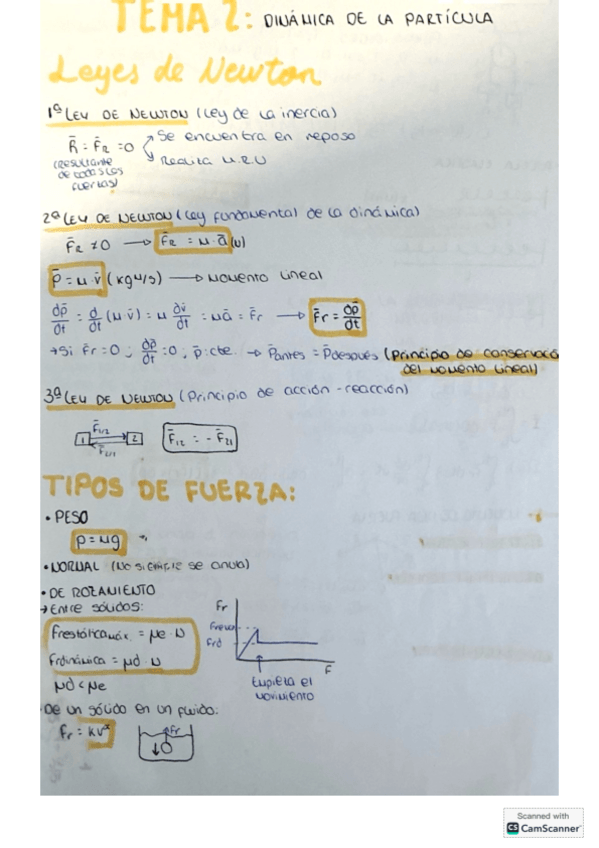 TEMA 2: DINÁMICA DE LA PARTÍCULA
Leyes de Newton
1ª LEY DE NEWTON (Ley de la inercia)
R̄ = F̄R = 0 Se encuentra en reposo
(RESULTANTE de todas las fuerzas) Realiza M.R.U
2ª LEY DE NEWTON (Ley fundamental de la dinámica)
F̄R ≠ 0 → F̄R = m·ā (N)
p̄ = m·v̄ (kg m/s) → MOMENTO LINEAL
dp̄/dt = d/dt (m·v̄) = m dv̄/dt = mā = F̄r → F̄r = dp̄/dt
→ Si F̄r = 0 ; dp̄/dt = 0 ; p̄: cte → P̄antes = P̄después (Principio de conservació
del momento lineal)
3ª LEY DE NEWTON (Principio de acción - reacción)
F̄1/2
1 2 F̄12 = - F̄21
F̄2/1
TIPOS DE FUERZA:
• PESO
P = mg
• NORMAL (No siempre se anula)
• DE ROZAMIENTO
→ Entre sólidos: Fr
Frestática máx. = μe · N
Frdinámica = μd · N Frd
F̄
μd < μe Empieza el
movimiento
De un sólido en un fluido:
Fr = kvˣ Fr
Scanned with
CS CamScanner